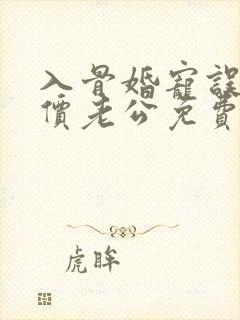 入骨婚寵誤
價老公免費
虎眸